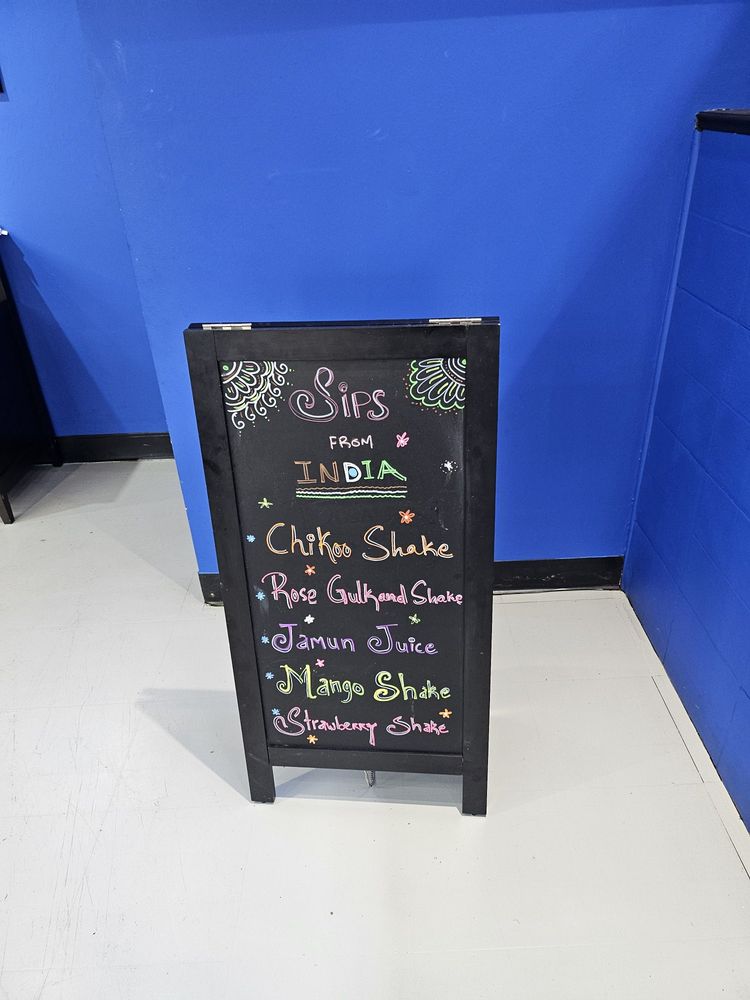 Sips
FROM
INDIA
Chikoo Shake
Rose Gulkand Shake
Jamun Juice
Mango Shake
Strawberry Shake